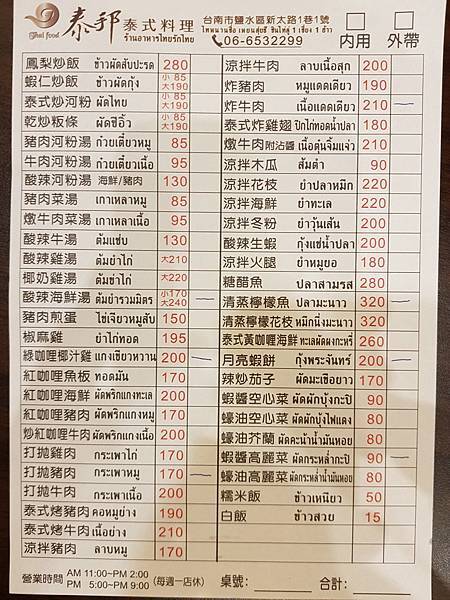 Thai food
泰邦 泰式料理
ร้านอาหารไทยรักไทย
台南市鹽水區新太路1巷1號
06-6532299
內用 外帶
鳳梨炒飯 ข้าวผัดสับปะรด 280
蝦仁炒飯 ข้าวผัดกุ้ง 小 85 大190
泰式炒河粉 ผัดไทย 小 85 大190
乾炒粄條 ผัดซีอิ๊ว 小 85 大190
豬肉河粉湯 ก๋วยเตี๋ยวหมู 85
牛肉河粉湯 ก๋วยเตี๋ยวเนื้อ 95
酸辣河粉湯 海鮮/豬肉 130
豬肉菜湯 เกาเหลาหมู 85
燉牛肉菜湯 เกาเหลาเนื้อ 95
酸辣牛湯 ต้มแซ่บ 130
酸辣雞湯 ต้มยำไก่ 大210
椰奶雞湯 ต้มข่าไก่ 大220
酸辣海鮮湯 ต้มยำรวมมิตร 小170 大240
豬肉煎蛋 ไข่เจียวหมูสับ 150
椒麻雞 ยำไก่ทอด 195
綠咖哩椰汁雞 แกงเขียวหวาน 200
紅咖哩魚板 ทอดมัน 170
紅咖哩海鮮 ผัดพริกแกงทะเล 200
紅咖哩豬肉 ผัดพริกแกงหมู 170
炒紅咖哩牛肉 ผัดพริกแกงเนื้อ 200
打拋雞肉 กระเพาไก่ 170
打拋豬肉 กระเพาหมู 170
打拋牛肉 กระเพาเนื้อ 200
泰式烤豬肉 คอหมูย่าง 190
泰式烤牛肉 เนื้อย่าง 210
涼拌豬肉 ลาบหมู 170
涼拌牛肉 ลาบเนื้อสุก 200
炸豬肉 หมูแดดเดียว 190
炸牛肉 เนื้อแดดเดียว 210
泰式炸雞翅 ปีกไก่ทอดน้ำปลา 180
燉牛肉附沾醬 เนื้อตุ๋นจิ้มแจ่ว 210
涼拌木瓜 ส้มตำ 90
涼拌花枝 ยำปลาหมึก 220
涼拌海鮮 ยำทะเล 220
涼拌冬粉 ยำวุ้นเส้น 200
酸辣生蝦 กุ้งแช่น้ำปลา 200
涼拌火腿 ยำหมูยอ 180
糖醋魚 ปลาสามรส 280
清蒸檸檬魚 ปลามะนาว 320
清蒸檸檬花枝 หมึกนึ่งมะนาว 320
泰式黃咖哩海鮮 ทะเลผัดผงกะหรี่ 260
月亮蝦餅 กุ้งพระจันทร์ 200
辣炒茄子 ผัดมะเขือยาว 170
蝦醬空心菜 ผัดผักบุ้งกะปิ 90
蠔油空心菜 ผัดผักบุ้งไฟแดง 80
蠔油芥蘭 ผัดคะน้าน้ำมันหอย 80
蝦醬高麗菜 ผัดกระหล่ำกะปิ 90
蠔油高麗菜 ผัดกระหล่ำน้ำมันหอย 80
糯米飯 ข้าวเหนียว 50
白飯 ข้าวสวย 15
營業時間 AM 11:00~PM 2:00
PM 5:00~PM 9:00 (每週一店休)
桌號: 合計: